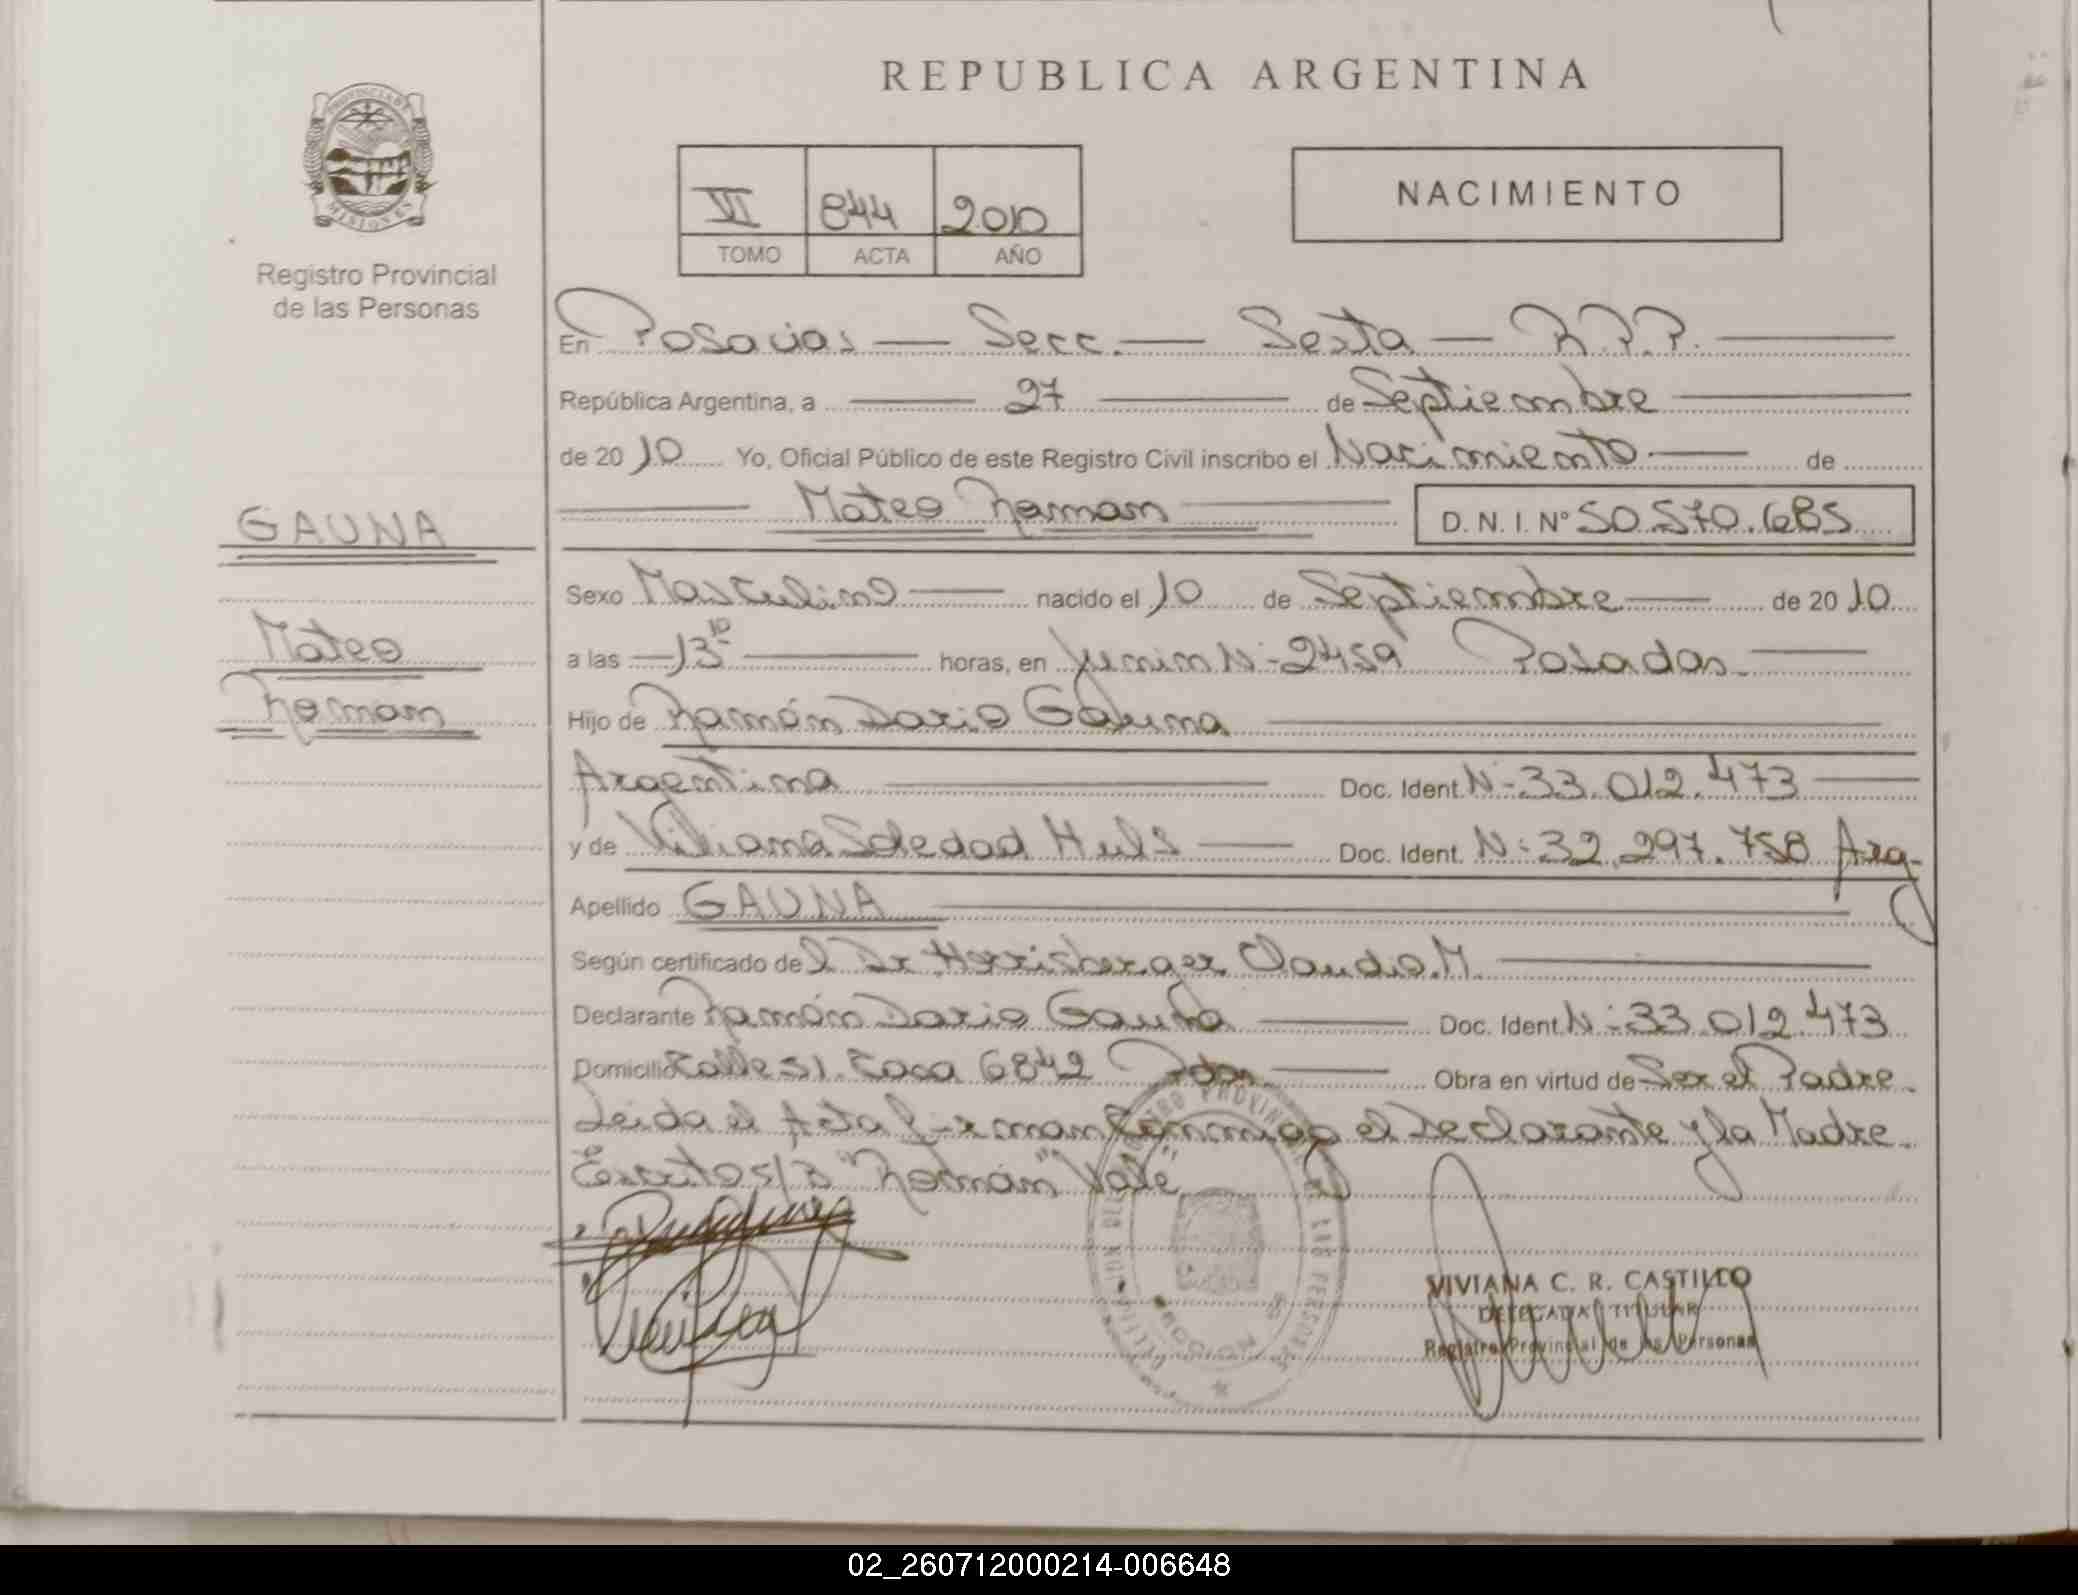 REPUBLICA ARGENTINA
PROVINCIA DE
MISIONES
Registro Provincial
de las Personas
VI 844 2010
TOMO ACTA AÑO
NACIMIENTO
En Posadas — Secc. — Sexta — R.P.P.
República Argentina, a 27 de Septiembre
de 2010 Yo, Oficial Público de este Registro Civil inscribo el Nacimiento de
Mateo Roman D. N. I. Nº 50.570.685
GAUNA
Mateo
Roman
Sexo Masculino nacido el 10 de Septiembre de 2010
a las 13 10 horas, en Junin Nº 2459 Posadas
Hijo de Ramón Dario Gauna
Argentina Doc. Ident. Nº 33.012.473
y de Viliana Soledad Huls Doc. Ident. Nº 32.297.758 Arg.
Apellido GAUNA
Según certificado del Dr Herrisberger Claudio M.
Declarante Ramón Dario Gauna Doc. Ident. Nº 33.012.473
Domicilio Calle 51. Casa 6842 Pdas. Obra en virtud de Ser el Padre.
Leida el Acta firman conmigo el Declarante y la Madre.
Escrito s/b "Román" Vale
VIVIANA C. R. CASTILLO
DELEGADA TITULAR
Registro Provincial de las Personas
02_260712000214-006648